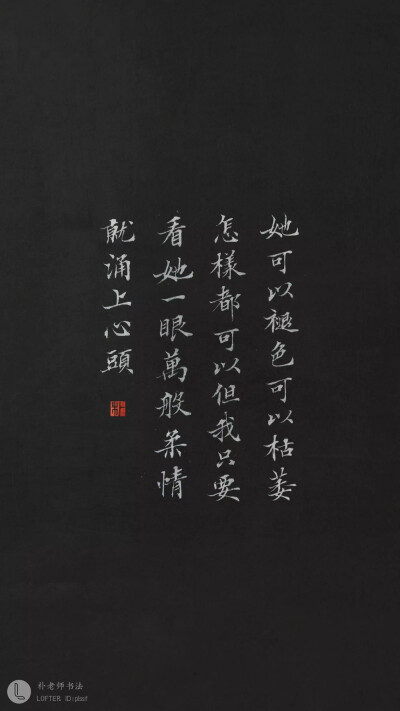 她可以褪色可以枯萎
怎樣都可以但我只要
看她一眼萬般柔情
就涌上心頭
朴老师书法
LOFTER ID:plsf